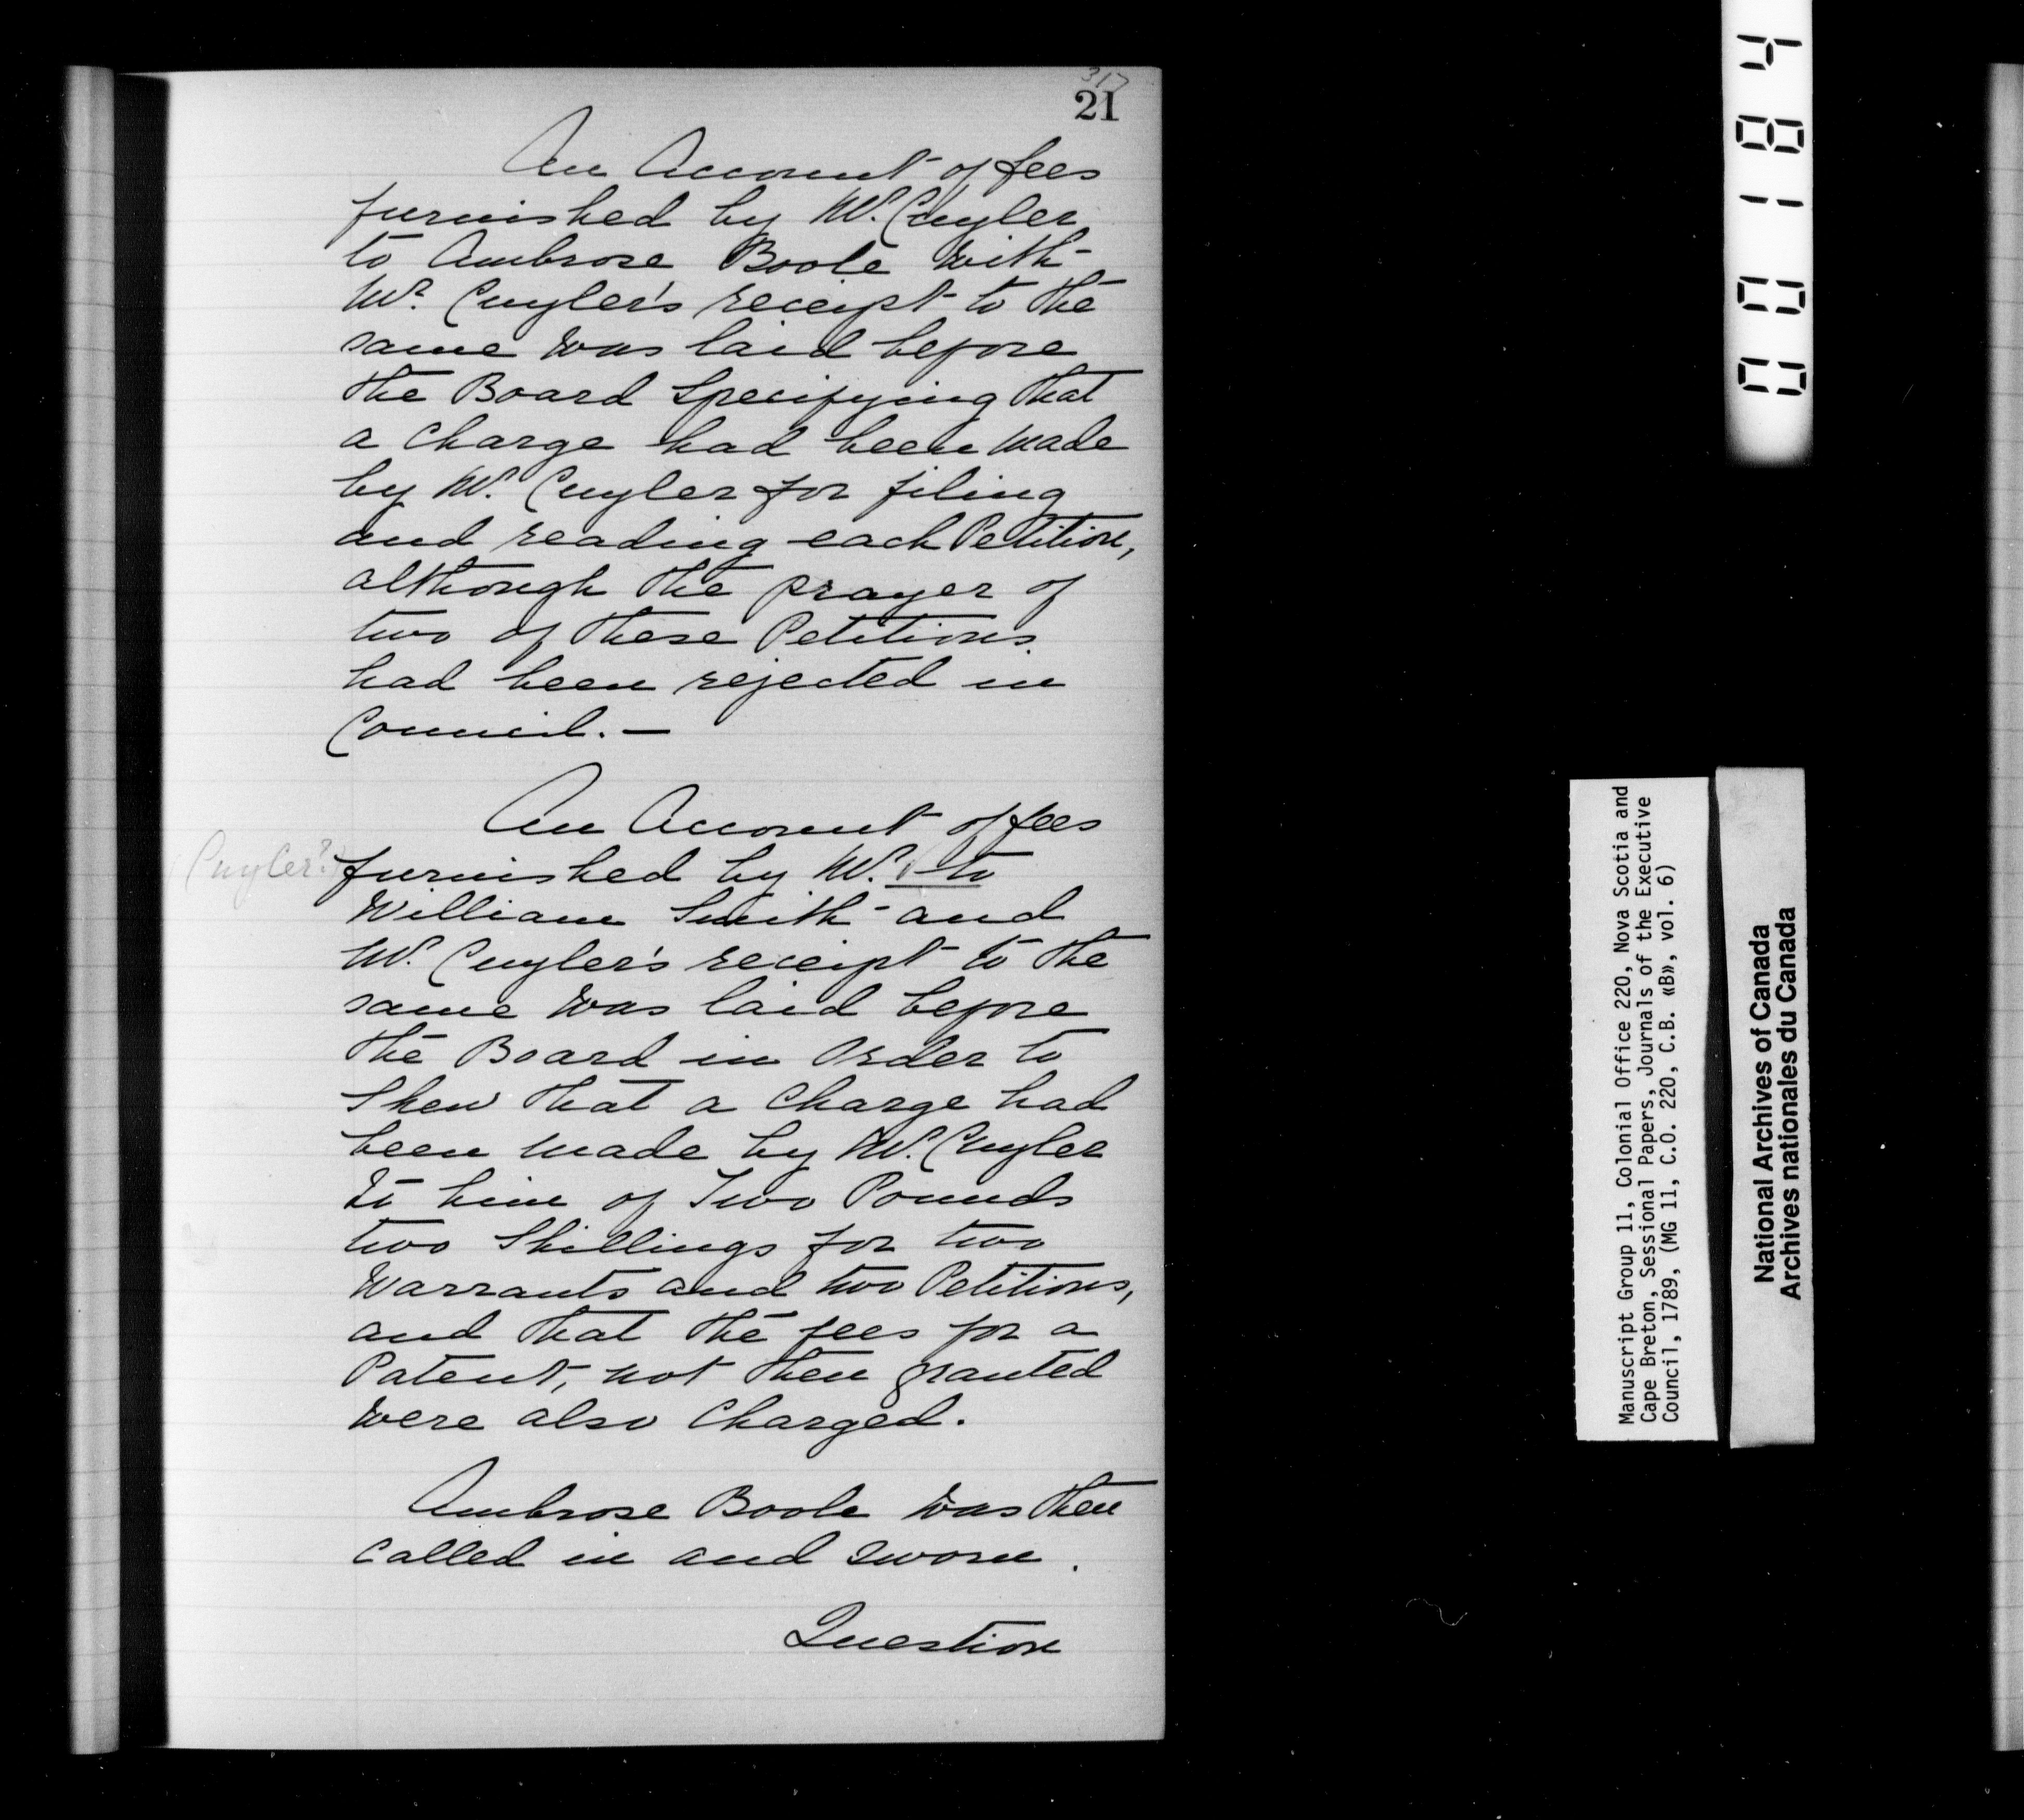 317
21
An Account of fees
furnished by Mr. Cuyler
to Ambrose Boole with
Mr. Cuyler's receipt to the
same was laid before
the Board Specifying that
a Charge had been made
by Mr. Cuyler for filing
and reading each Petition,
although the prayer of
two of these Petitions
had been rejected in
Council. —
An Account of fees
(Cuyler?) furnished by Mr. √ to
William Smith and
Mr. Cuyler's receipt to the
same was laid before
the Board in Order to
Shew that a Charge had
been made by Mr. Cuyler
to him of Two Pounds
two Shillings for two
Warrants and two Petitions,
and that the fees for a
Patent, not then granted
were also Charged.
Ambrose Boole was then
called in and sworn.
Question
00184
Manuscript Group 11, Colonial Office 220, Nova Scotia and
Cape Breton, Sessional Papers, Journals of the Executive
Council, 1789, (MG 11, C.O. 220, C.B. «B», vol. 6)
National Archives of Canada
Archives nationales du Canada